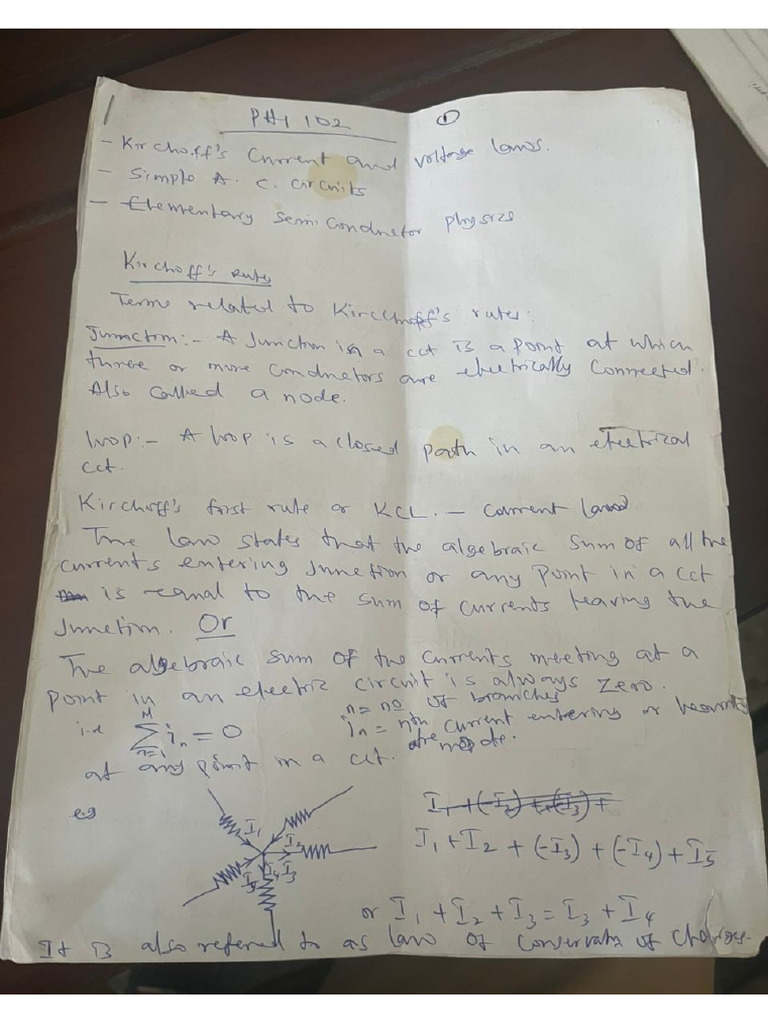 PHY 102
①
- Kirchoff's Current and voltage laws.
- Simple A. C. circuits
- Elementary semi conductor physics
Kirchoff's rules
Terms related to Kirchhoff's rules:
Junction:- A Junction in a cct is a point at which
three or more conductors are electrically connected.
Also called a node.
loop:- A loop is a closed path in an electrical
cct.
Kirchoff's first rule or KCL. - Current law
The law states that the algebraic sum of all the
currents entering junction or any point in a cct
is equal to the sum of currents leaving the
Junction. Or
The algebraic sum of the currents meeting at a
point in an electric circuit is always zero.
i.e M Σ n=1 in = 0 n = no of branches
in = nth current entering or leaving
the node.
at any point in a cct.
e.g
I1 + (-I2) + (-I3) +
I1 I2
I5 I4 I3
I1 + I2 + (-I3) + (-I4) + I5
or I1 + I2 + I3 = I3 + I4
It is also referred to as law of conservatn of charge.